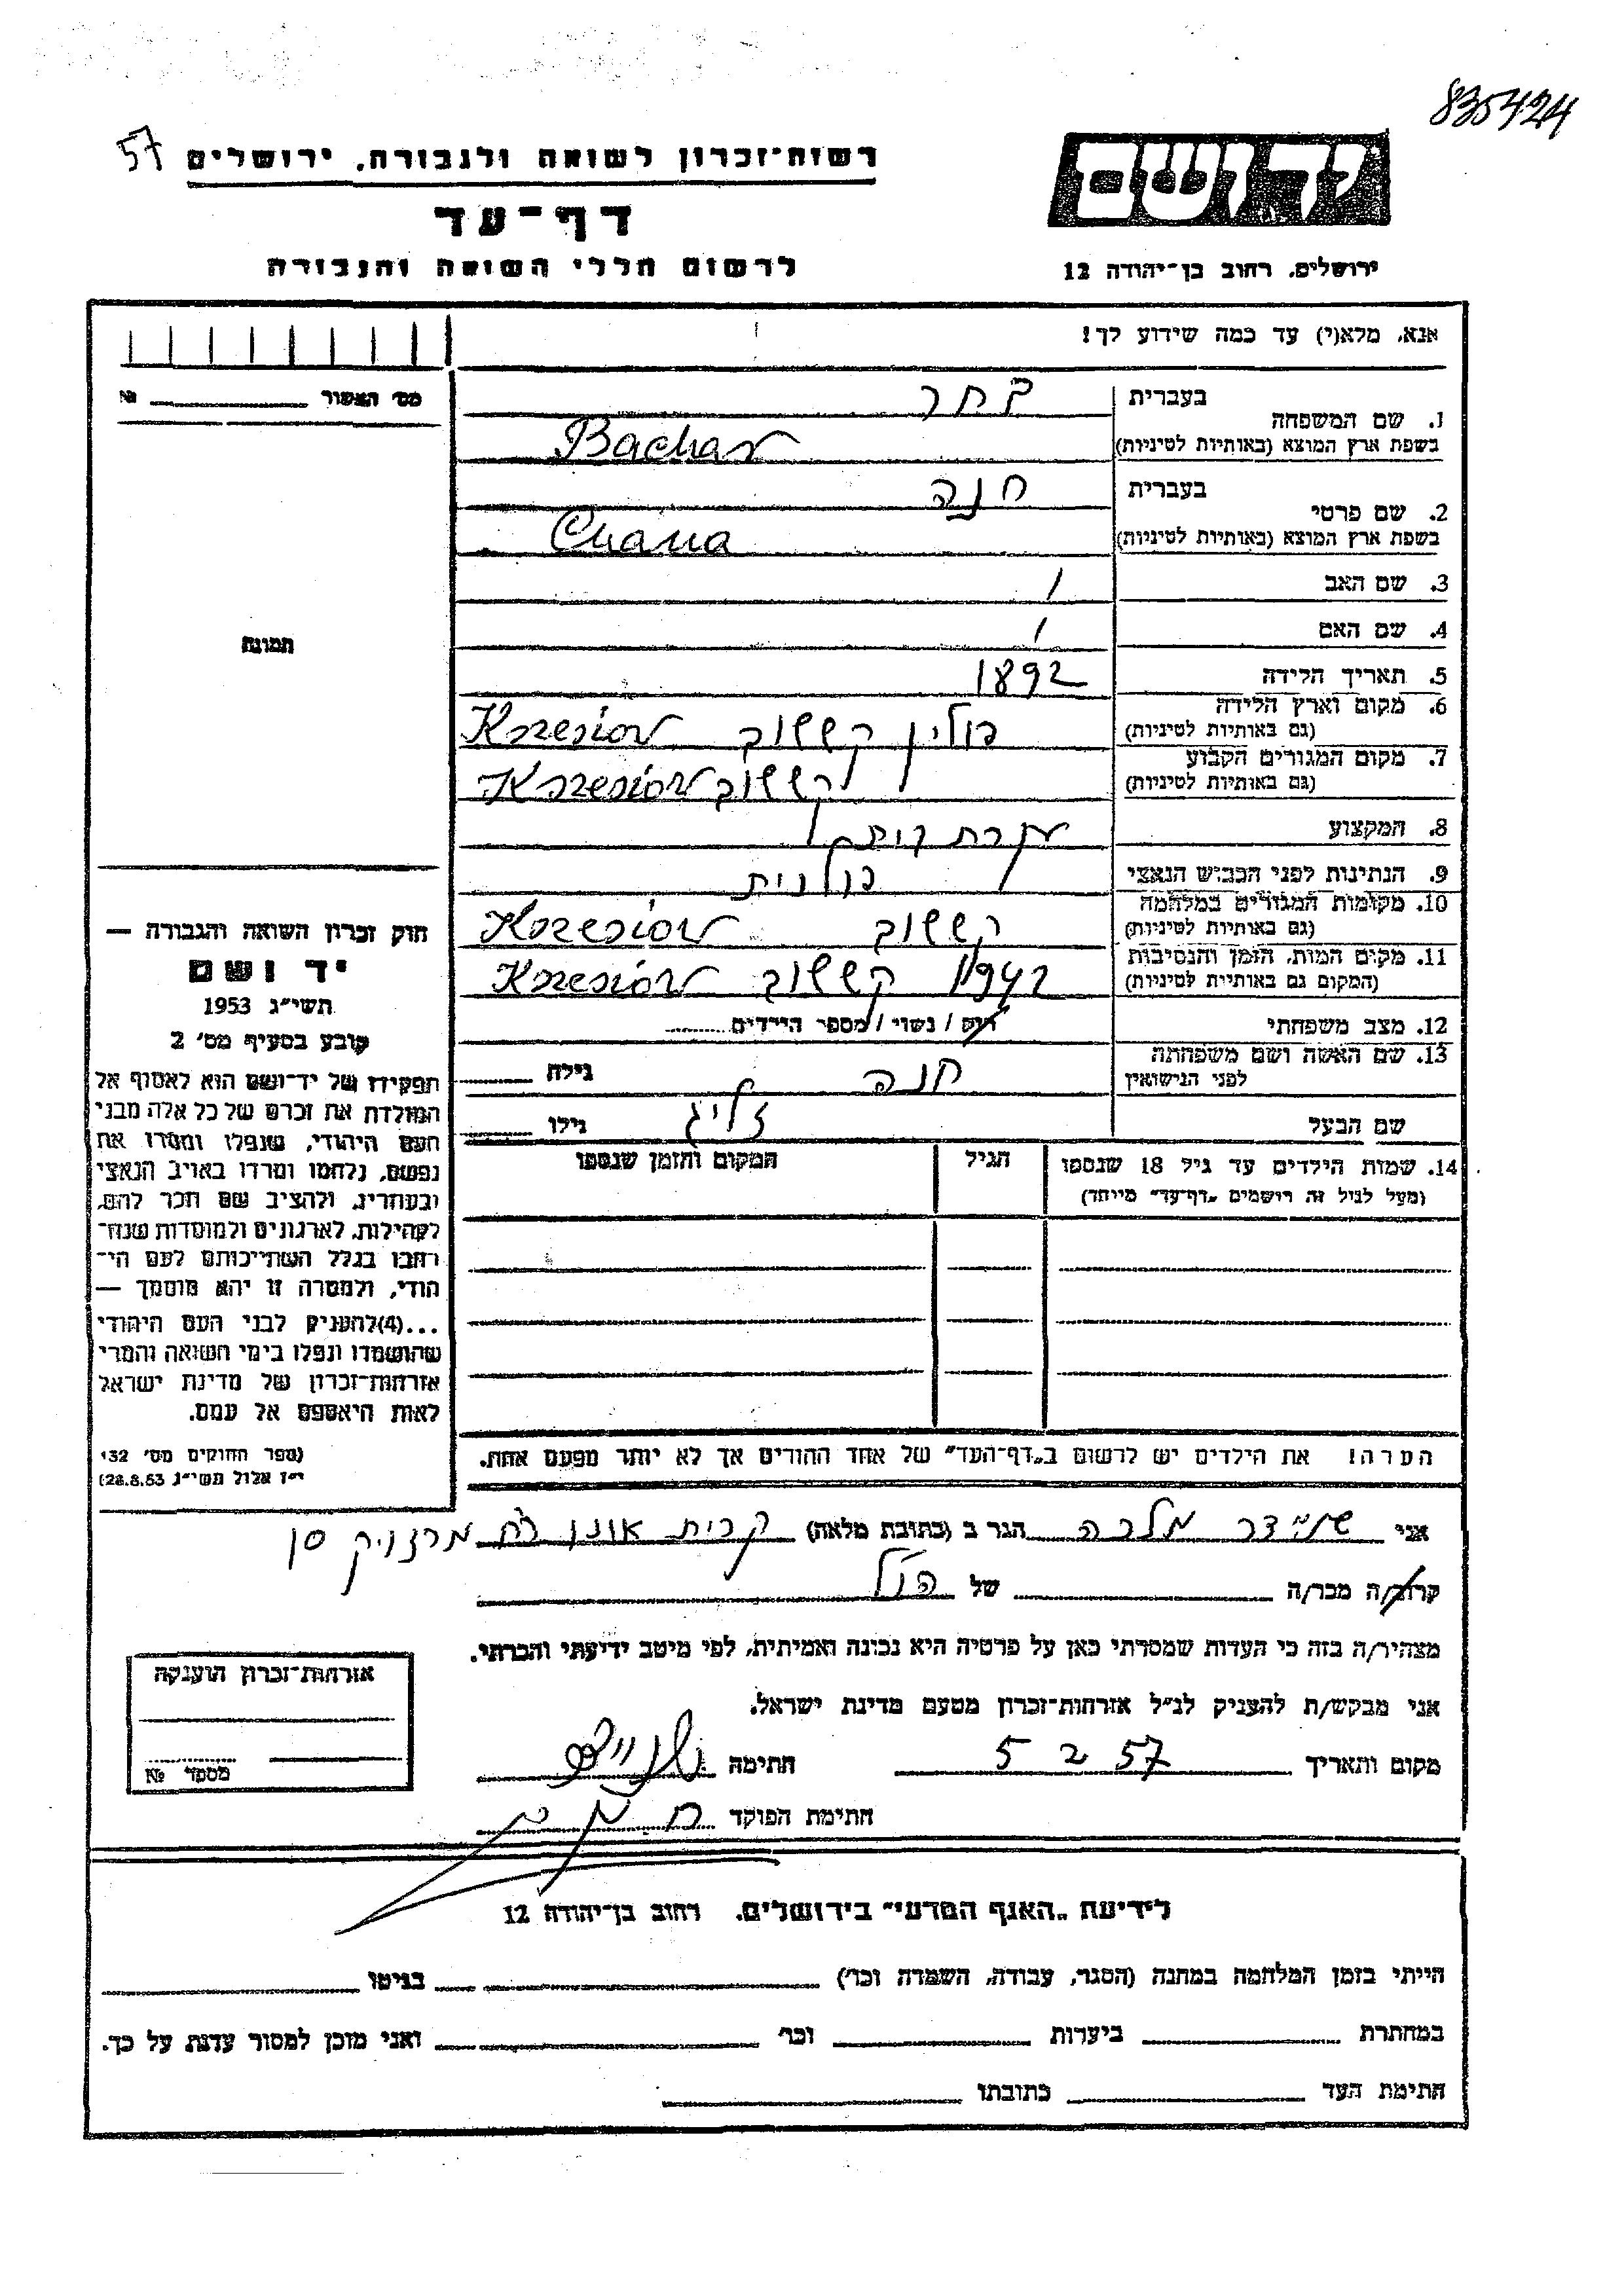 835424
57
רשות-זכרון לשואה ולגבורה, ירושלים
יד ושם
דף-עד
לרשום חללי השואה והגבורה
ירושלים, רחוב בן-יהודה 12
אנא, מלא(י) עד כמה שידוע לך!
מס׳ האשור №
תמונה
1. שם המשפחה
בעברית בחר
בשפת ארץ המוצא (באותיות לטיניות) Bachar
2. שם פרטי
בעברית חנה
בשפת ארץ המוצא (באותיות לטיניות) Chana
3. שם האב /
4. שם האם /
5. תאריך הלידה 1892
6. מקום וארץ הלידה פולין קששוב Kszesiov
(גם באותיות לטיניות)
7. מקום המגורים הקבוע קששוב Kszesiov
(גם באותיות לטיניות)
8. המקצוע עקרת בית
9. הנתינות לפני הכבוש הנאצי פולנית
10. מקומות המגורים במלחמה קששוב Kszesiov
(גם באותיות לטיניות)
11. מקום המות, הזמן והנסיבות 1942 קששוב Kszesiov
(המקום גם באותיות לטיניות)
12. מצב משפחתי רוק / נשוי / מספר הילדים
13. שם האשה ושם משפחתה
לפני הנישואין חנה גילה
שם הבעל זליג גילו
14. שמות הילדים עד גיל 18 שנספו הגיל המקום והזמן שנספו
(מעל לגיל זה רושמים „דף-עד״ מיוחד)
הערה! את הילדים יש לרשום ב„דף-העד״ של אחד ההורים אך לא יותר מפעם אחת.
חוק זכרון השואה והגבורה —
יד ושם
תשי״ג 1953
קובע בסעיף מס׳ 2
תפקידו של יד-ושם הוא לאסוף אל
המולדת את זכרם של כל אלה מבני
העם היהודי, שנפלו ומסרו את
נפשם, נלחמו ומרדו באויב הנאצי
ובעוזריו, ולהציב שם וזכר להם,
לקהילות, לארגונים ולמוסדות שנח-
רבו בגלל השתייכותם לעם הי-
הודי, ולמטרה זו יהא מוסמך —
...(4)להעניק לבני העם היהודי
שהושמדו ונפלו בימי השואה והמרי
אזרחות-זכרון של מדינת ישראל
לאות היאספם אל עמם.
(ספר החוקים מס׳ 132
י״ז אלול תשי״ג 28.8.53)
אני מלכה הגר ב (כתובת מלאה) קרית אונו
קרוב/ה מכר/ה של הנ״ל
מצהיר/ה בזה כי העדות שמסרתי כאן על פרטיה היא נכונה ואמיתית, לפי מיטב ידיעתי והכרתי.
אני מבקש/ת להעניק לנ״ל אזרחות-זכרון מטעם מדינת ישראל.
מקום ותאריך 5 2 57 חתימה
חתימת הפוקד
אזרחות-זכרון הוענקה
מספר №
לידיעת „האגף המדעי״ בירושלים, רחוב בן-יהודה 12
הייתי בזמן המלחמה במחנה (הסגר, עבודה, השמדה וכו׳) בגיטו
במחתרת ביערות וכו׳ ואני מוכן למסור עדות על כך.
חתימת העד כתובתו